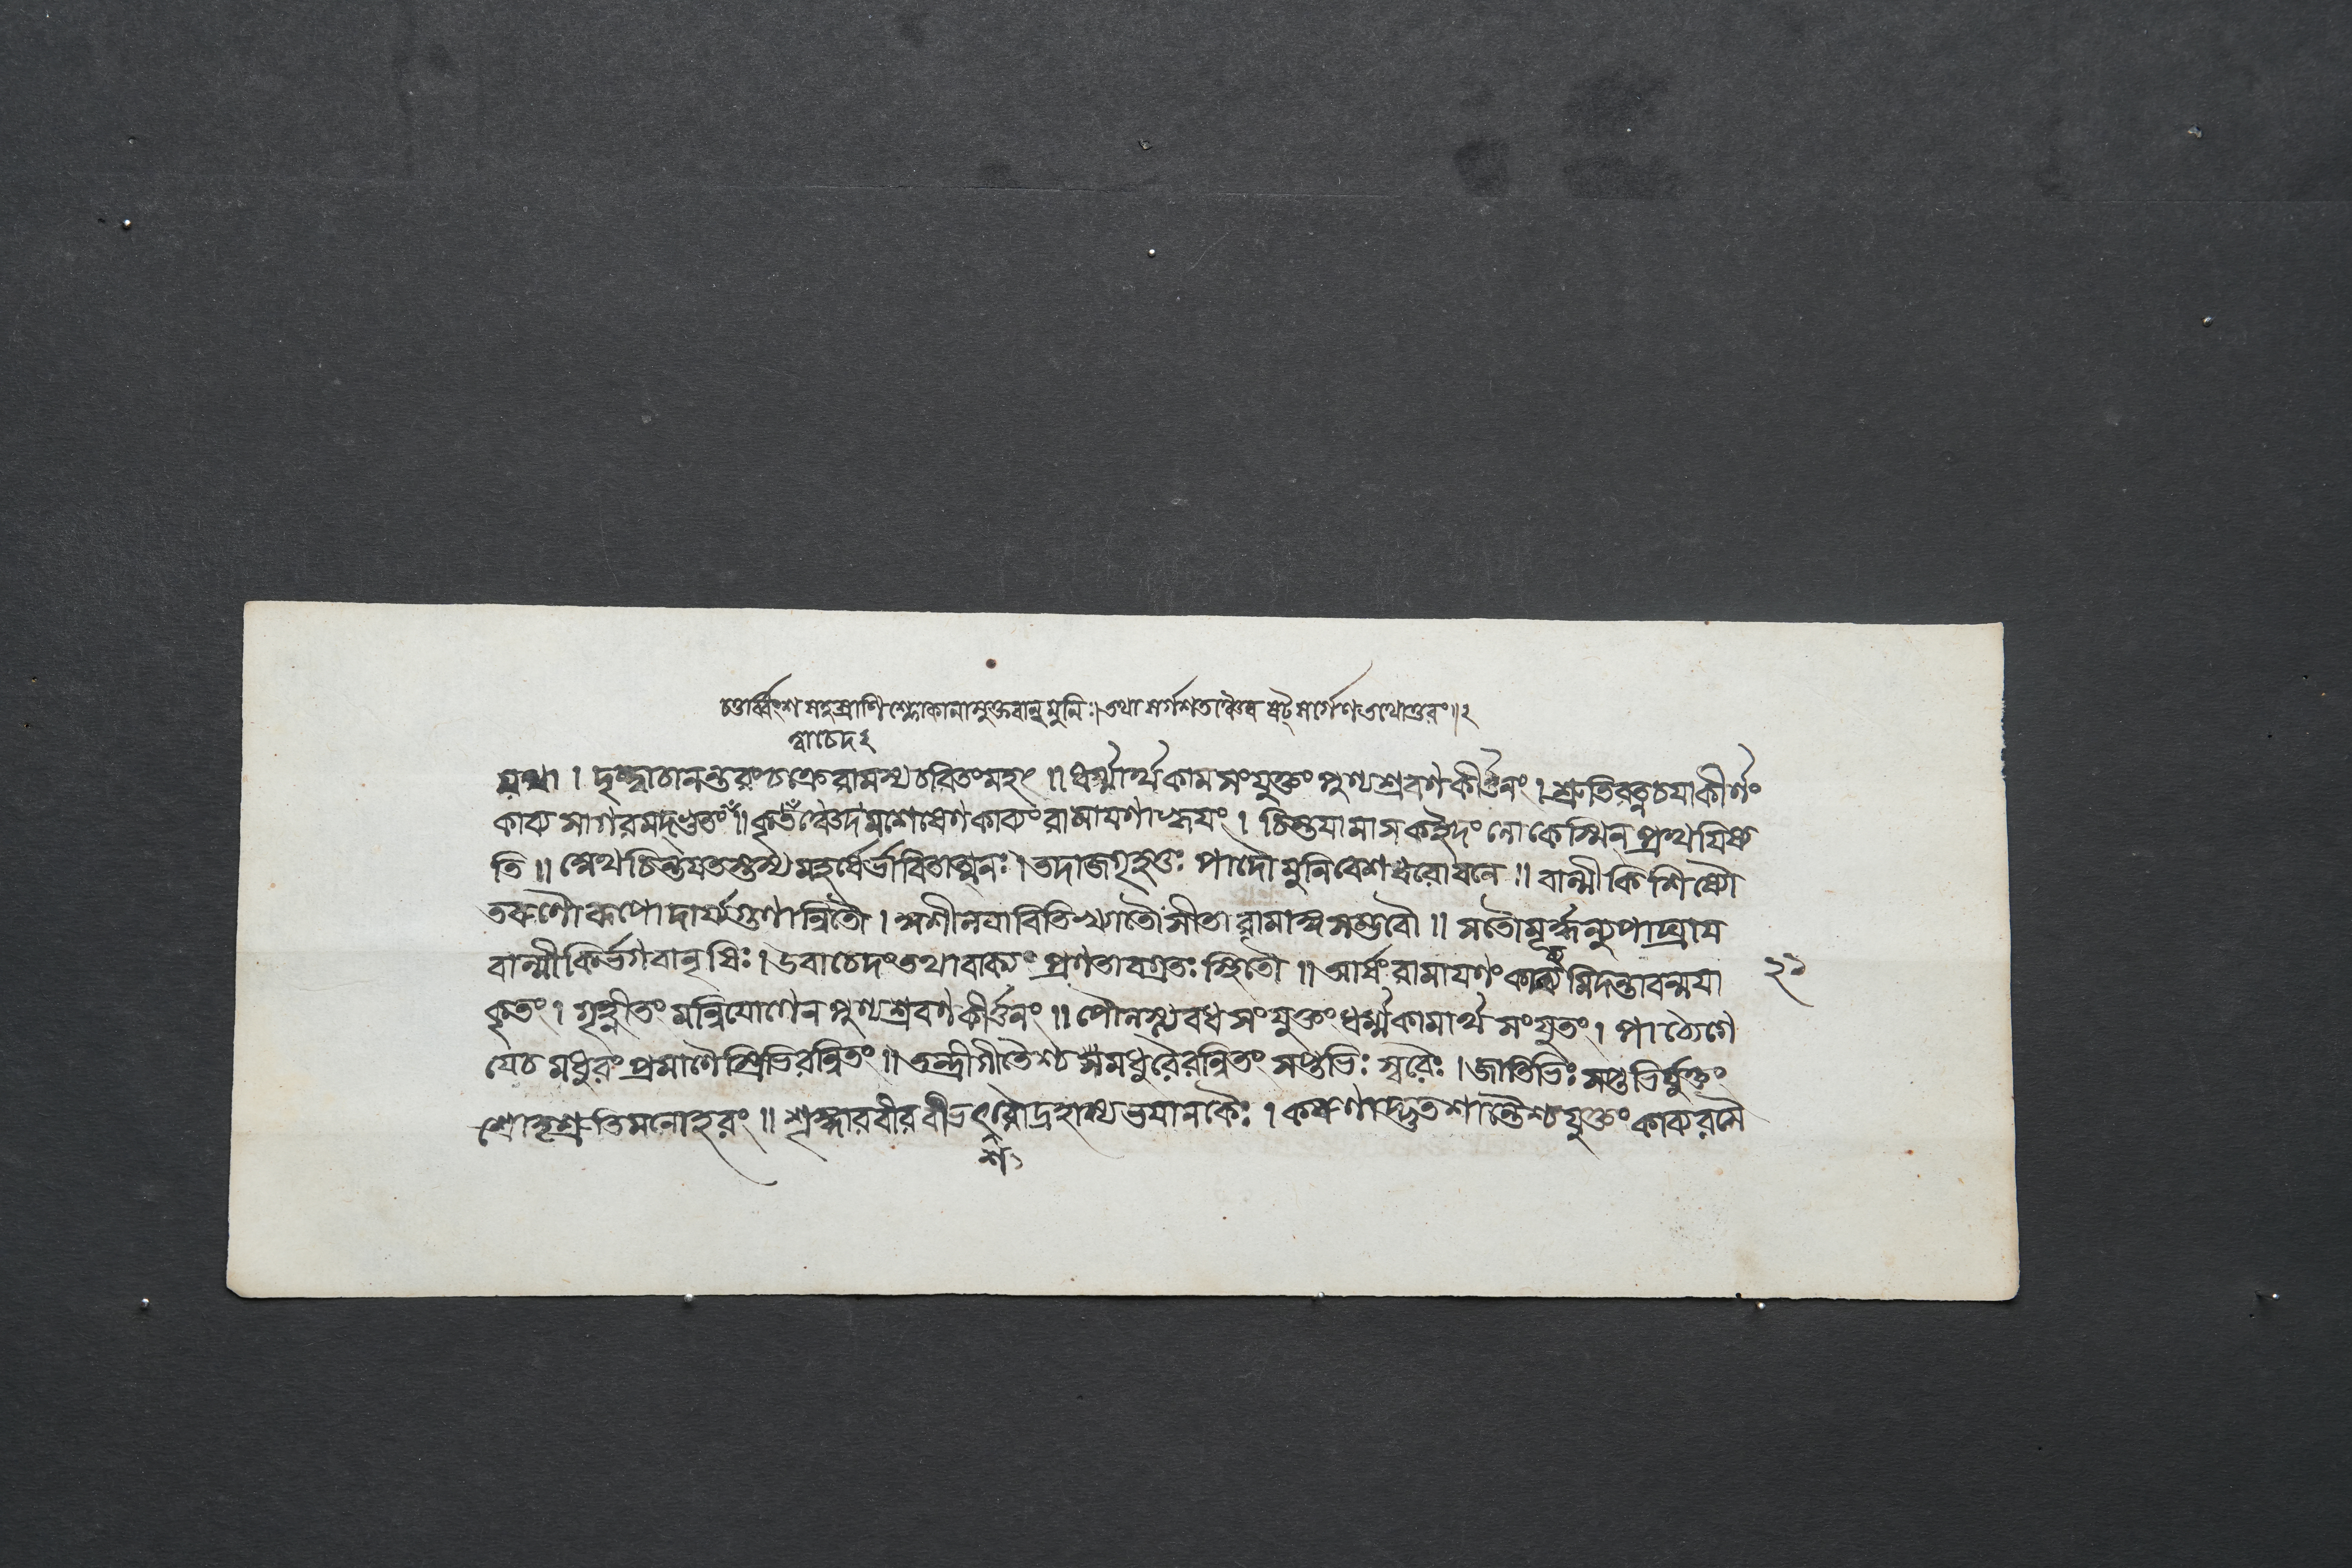 চতুর্ব্বিংশসহস্রাণিশ্লোকানামুক্তবান্মুনিঃ। তথা সর্গশতঞ্চৈব ষট্সর্গেণ তথোত্তরং॥২
ত্বাচেদ২
যথা। দৃষ্ট্বাচানন্তরংচক্রে রামস্যচরিতংমহৎ॥ ধর্ম্মার্থকামসংযুক্তং পুণ্যশ্রবণকীর্ত্তনং। শ্রুতিরত্নচয়াকীর্ণং
কাব্যসাগরমদ্ভুতং॥ কৃত্বা দমশেষেণকাব্যং রামায়ণাহ্বয়ং। চিন্তয়ামাসকইদং লোকেস্মিন্ প্রথয়িষ্য
তি॥ স্যেথ চিন্তয়তস্তস্য মহর্ষের্ভাবিতাত্মনঃ। তদাজগৃহতুঃ পাদৌ মুনিবেশধরোবনে॥ বাল্মীকিশিষ্যৌ
তরুণৌরূপোদার্য্যগুণান্বিতৌ। কুশীলবাবিতিখ্যাতৌ সীতারামাত্মসম্ভবৌ॥ সতৌমূর্দ্ধন্যুপাঘ্রায়
বাল্মীকির্ভগবানৃষিঃ। উবাচেদংতথাবাক্যং প্রণতাবগ্রতঃস্থিতৌ॥ আর্ষং রামায়ণং কাব্যমিদন্তাবন্ময়া ২১
কৃতং। গৃহ্নীতং মন্নিয়োগেন পুণ্যশ্রবণকীর্ত্তনং॥ পৌলস্ত্যবধসংযুক্তং ধর্ম্মকামার্থসংযুতং। পাঠ্যেগে
য়েচমধুরং প্রমাণৈস্ত্রিভিরন্বিতং॥ তন্ত্রীগীতৈশ্চ সমধুরৈরন্বিতং সপ্তভিঃস্বরৈঃ। জাতিভিঃ সপ্তভির্যুক্তং
শ্রোতৃশ্রুতিমনোহরং॥ শৃঙ্গারবীরবীভৎরৌদ্রহাস্যভয়ানকৈঃ। করুণাদ্ভুতশান্তৈশ্চ যুক্তং কাব্যরসৈ